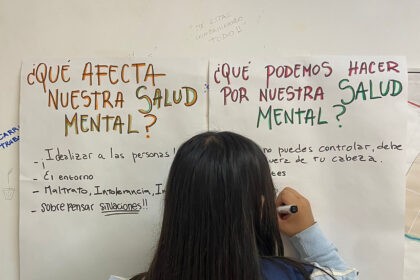 ME ESTAS
TODO!!
¿QUÉ AFECTA
NUESTRA SALUD
MENTAL?
- Idealizar a las personas
- El entorno
- Maltrato, Intolerancia,
- sobre pensar situaciones!!
¿QUÉ PODEMOS HACER
POR NUESTRA SALUD
MENTAL?
no puedes controlar, debe
de tu cabeza.
CARR
TRABA